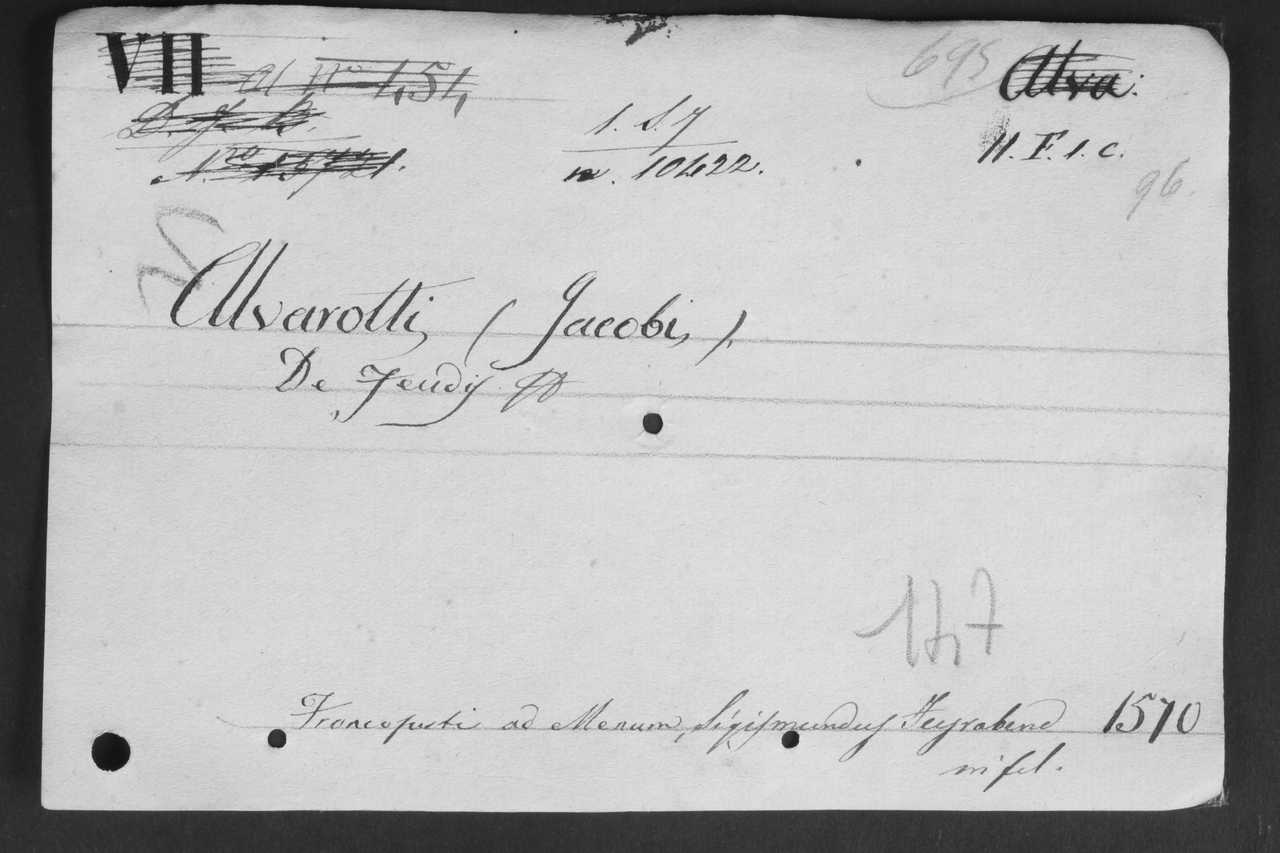 VII
695
Alva:
1. S. 7
n. 10422.
11. F. 1. c.
96.
Alvarotti, (Jacobi,).
De Feudis
17,7
Francofurti ad Menum, Sigismundus Feyrabend 1570
in fol.